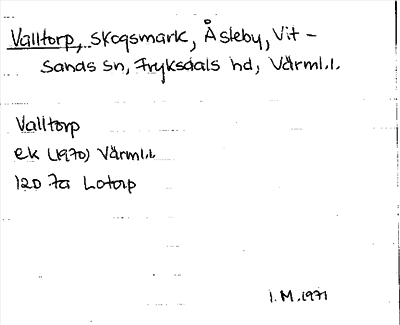 Valltorp, skogsmark, Åsleby, Vit-
sands sn, Fryksdals hd, Värml.l.
Valltorp
ek (1970) Värml.l
12D 7a Lotorp
I.M.1971